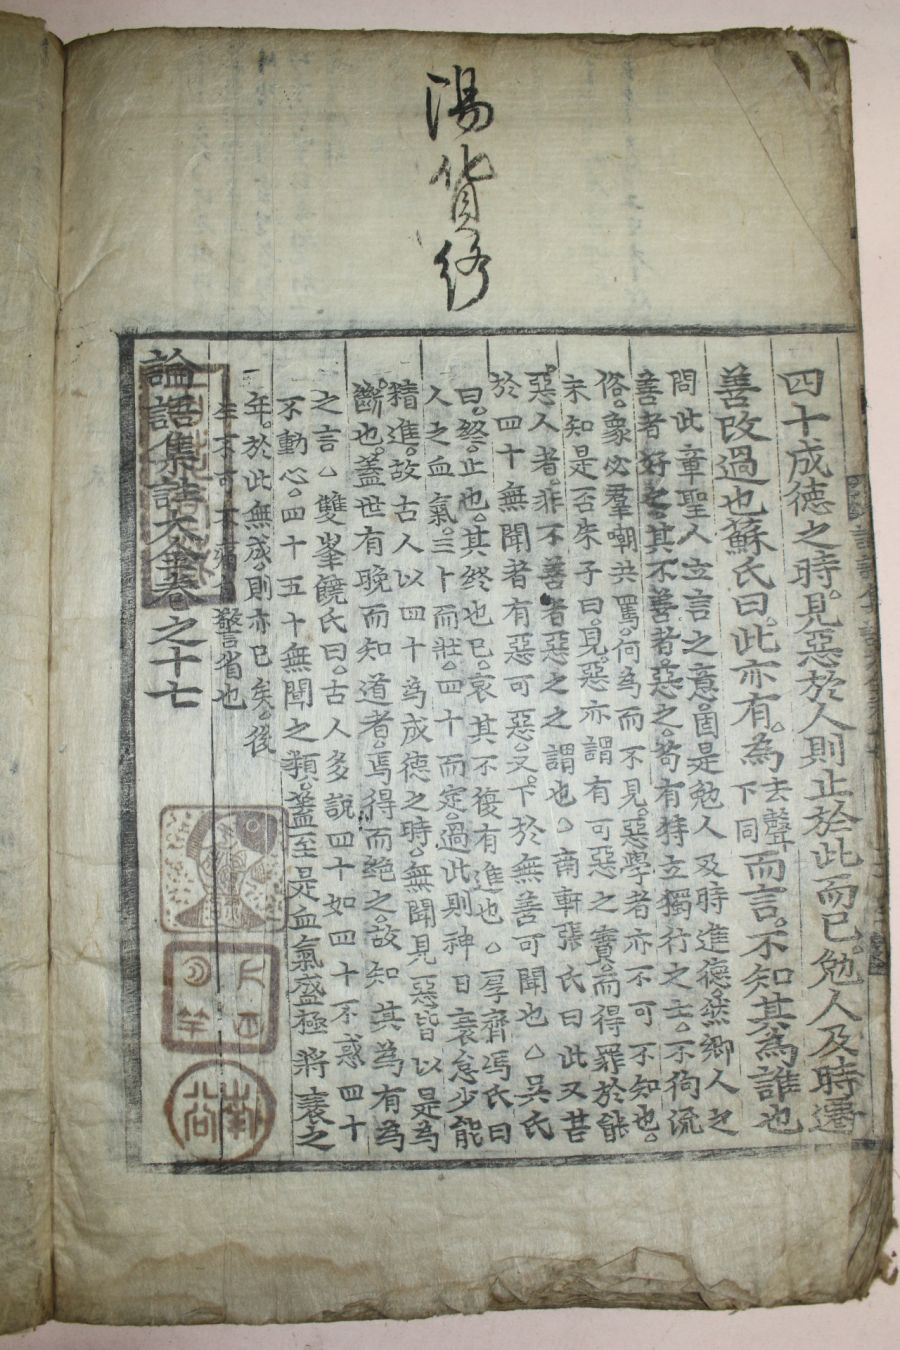 陽貨終
四十成德之時。見惡於人則止於此而已。勉人及時遷
善改過也蘇氏曰。此亦有。為去聲下同而言。不知其為誰也
問此章聖人立言之意。固是勉人及時進德。然鄉人之
善者好之其不善者惡之。苟有特立獨行之士。不徇流
俗。衆必羣嘲共罵。何為而不見。惡學者亦不可不知也。
未知是否朱子曰。見。惡亦謂有可惡之實。而得罪於能
惡人者。非不善者惡之之謂也。○南軒張氏曰此又甚
於四十無聞者有惡可惡。又。下於無善可聞也○吳氏
曰。終。止也。其終也已。哀其不復有進也○厚齊馮氏曰
人之血氣。三十而壯。四十而定。過此則神日衰怠少能
精進。故古人以四十為成德之時。無聞見惡皆以是為
斷也。蓋世有晚而知道者。焉得而絶之。故知其為有為
之言○雙峯饒氏曰。古人多說四十如四十不惑四十
不動心。四十五十無聞之類。蓋至是血氣盛極將衰之
年。於此無成。則亦已矣。後
生不可不 警省也
論語集註大全卷之十七